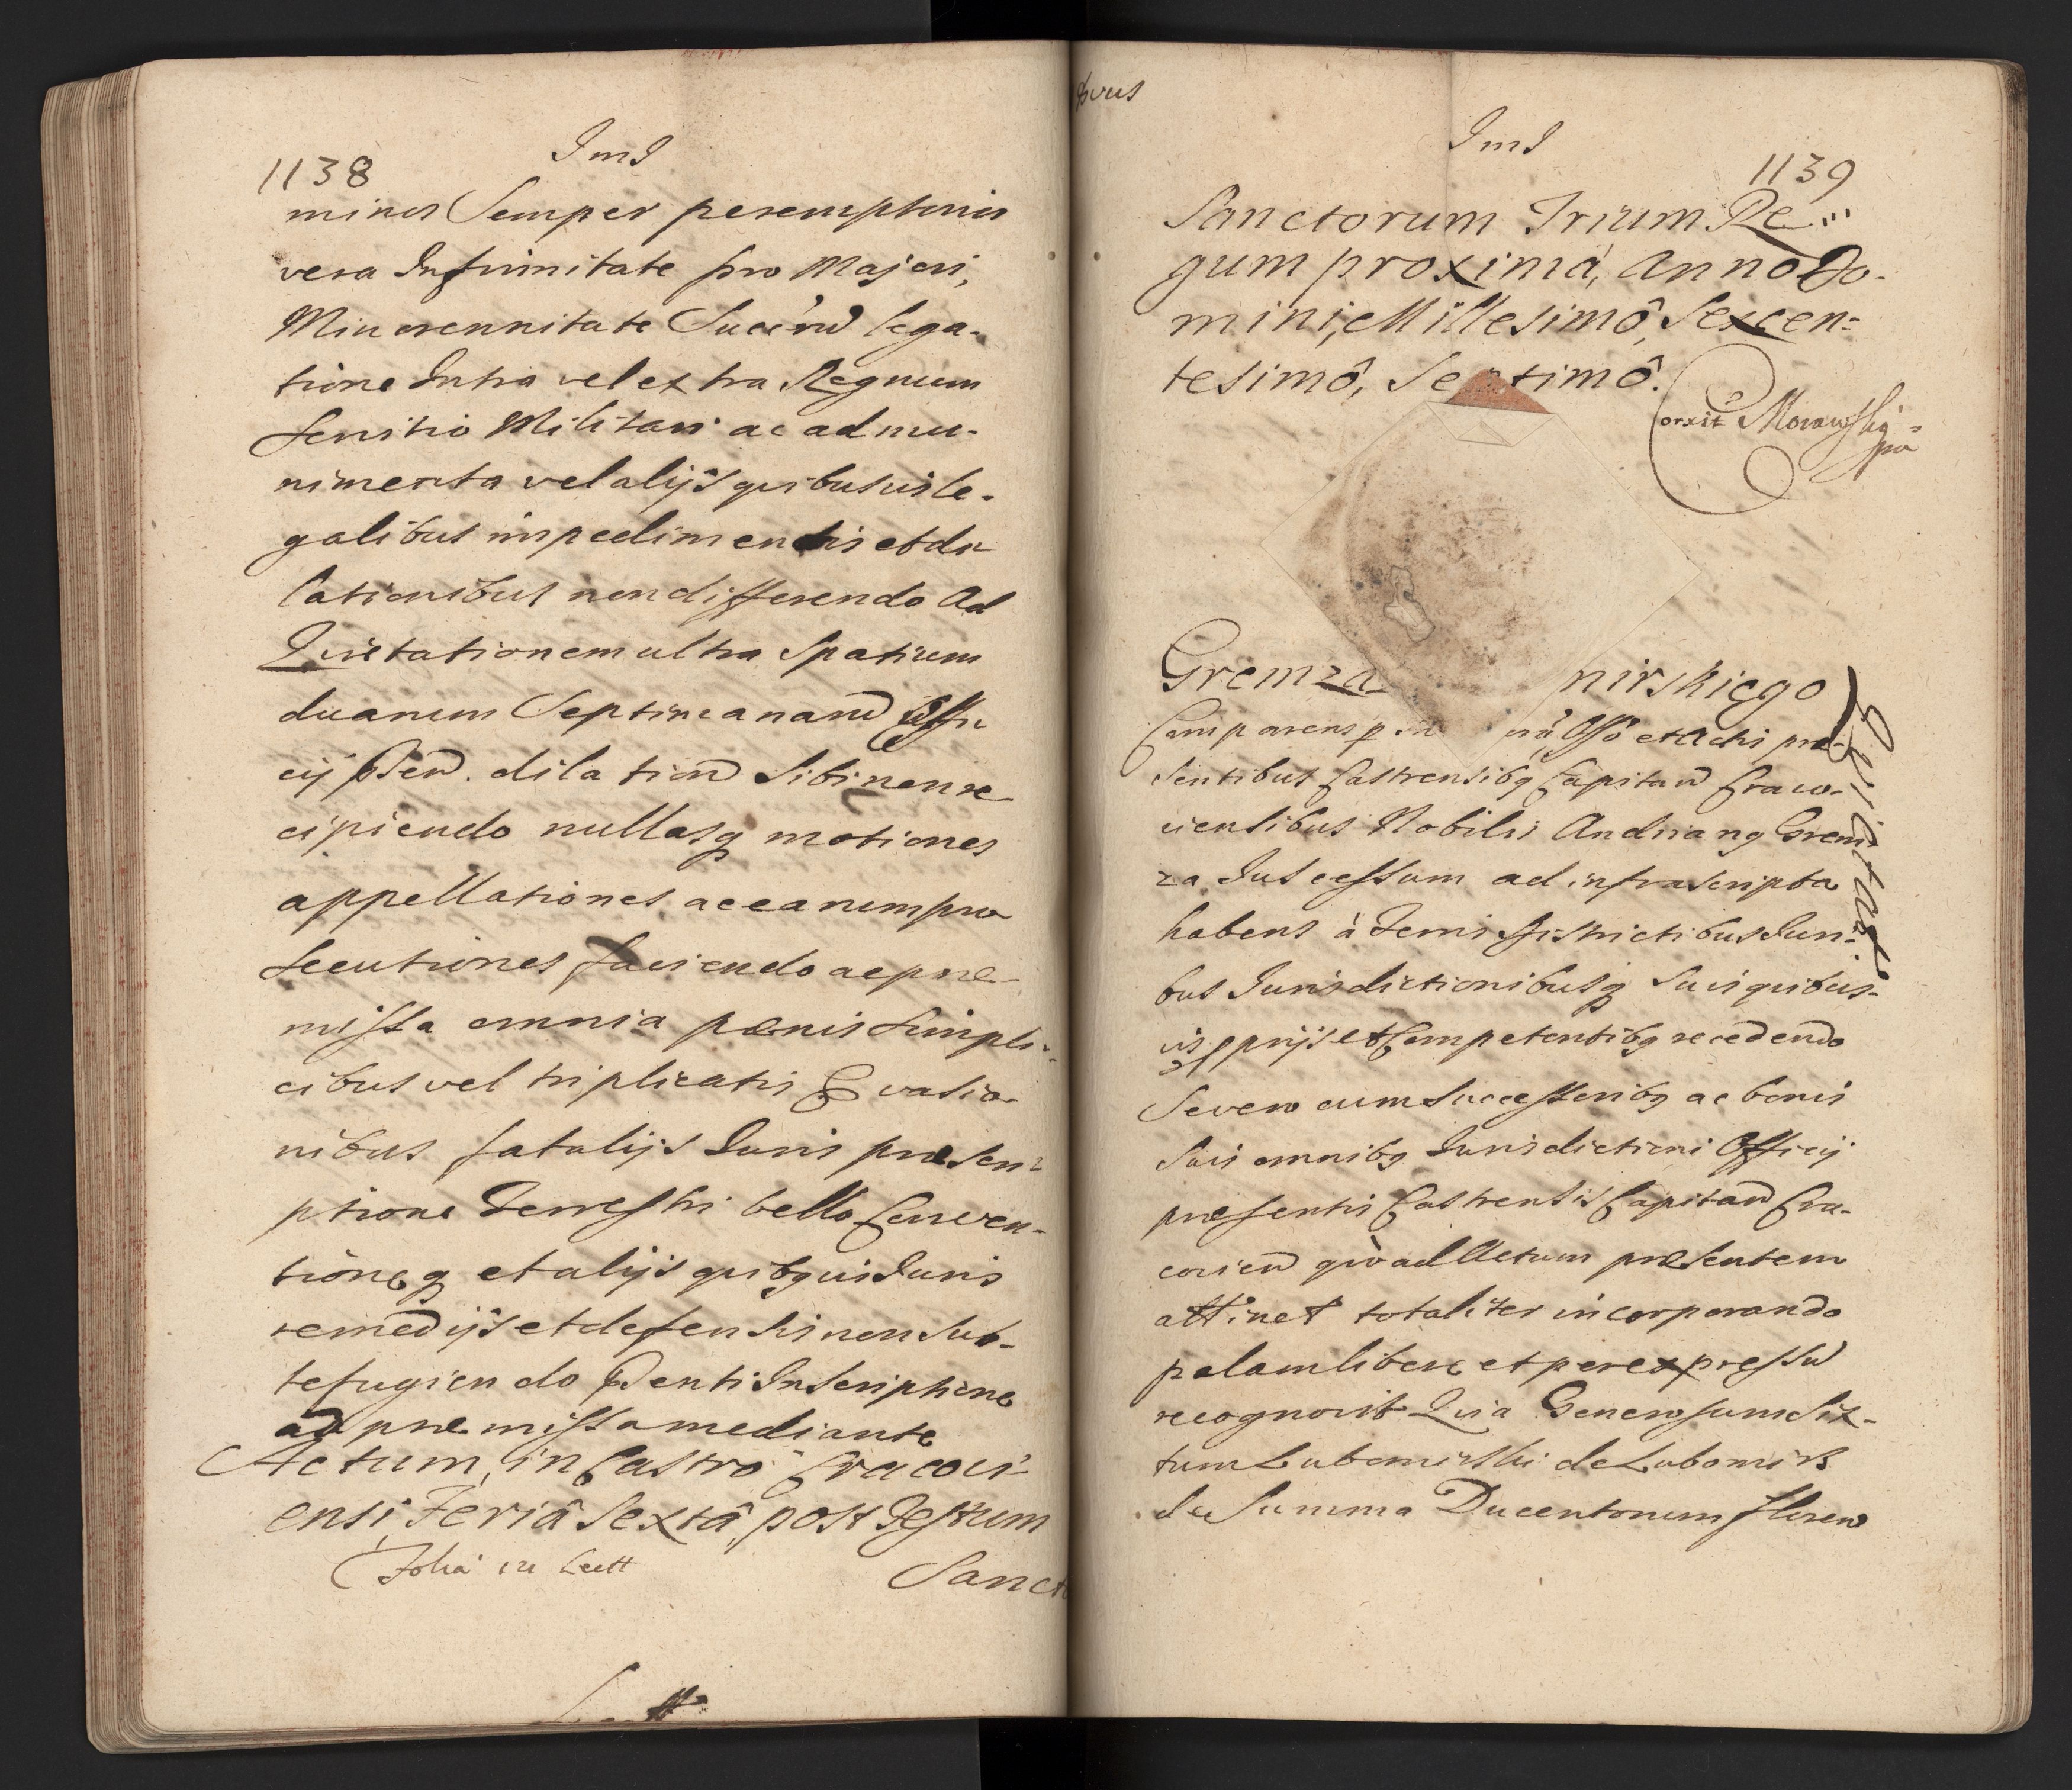 1138
Imd
minos Semper peremptorios
vera Infirmitate pro Majori,
Minorennitate Sucću̅ lega-
tione Intra vel extra Regnum
Servitio Militari ac ad mu-
nimenta vel alijs quibusvis le-
galibus impedimentis et di-
lationibus non differendo Ad
Quietationem ultra Spatium
duarum Septimanaru̅ Offi-
cij p̅sen̅. dilation̅ Sibi non re-
cipiendo nullasq motiones
appellationes ac earum pro-
secutiones faciendo ac præ-
missa omnia pænis simpli-
cibus vel triplicatis Evasio-
nibus fatalijs Iuris præscri-
ptione Terrestri bello Conven-
tioneq et alijs quibqvis Iuris
remedijs et defensis non sub-
tefugiendo p̅senti Inscriptione
ad præmissa mediante
Actum, in Castro Cracovi-
ensi, Feriâ Sextâ, post Festum
Sanct
vus
Imd
1139
Sanctorum Trium Re-
gum proximâ, Anno Do-
mini, Millesimô, Sexcen-
tesimô, Septimô.
orxit Morawski
mp
Gremza nirskiego
Quietat
Comparens p Offô et Actis præ-
sentibus Castrensibq Capitan̅ Craco-
viensibus Nobilis Andreas Grem-
za Successum ad infrascripta
habens à Terris Districtibus Iuri-
bus Iurisdictionibusq suis quibus-
vis pprijs et Competentibq recedendo
Se vero cum Successoribq ac bonis
suis omnibq Iurisdictioni Officij
præsentis Castrensis Capitan̅ Cra-
covien̅ quò ad Actum præsentem
attinet totaliter incorporando
palam libere et per expressu̅
recognovit Quia Generosum Six-
tum Lubomirski de Lubomirz
de Summa Ducentorum floren̅